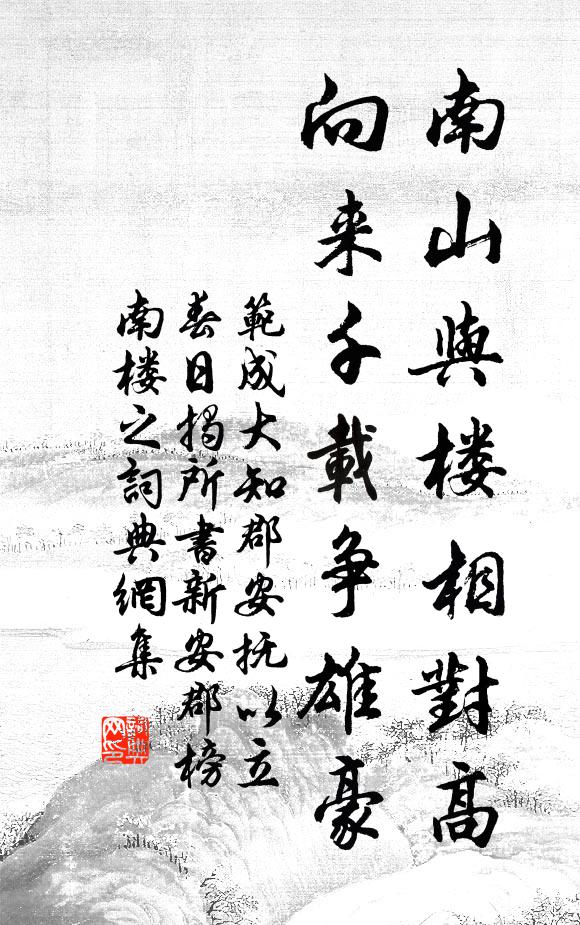 南山與楼相對高
向来千載争雄豪
範成大知郡安抚以立
春日揭所書新安郡榜
南楼之詞典網集